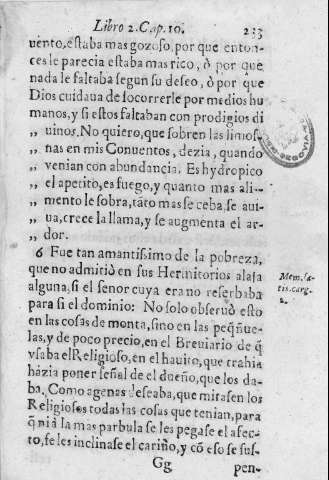 Libro 2. Cap. 10. 233
uento, estaba mas gozoso, por que enton-
ces le parecia estaba mas rico, ò por que
nada le faltaba segun su deseo, ò por que
Dios cuidaua de socorrerle por medios hu
manos, y si estos faltaban con prodigios di
,, uinos. No quiero, que sobren las limos-
,, nas en mis Conuentos, dezia, quando
,, venian con abundancia. Es hydropico
,, el apetito, es fuego, y quanto mas ali-
,, mento le sobra, tãto mas se ceba, se aui-
,, ua, crece la llama, y se augmenta el ar-
,, dor.
6 Fue tan amantissimo de la pobreza,
que no admitiò en sus Hermitorios alaja
alguna, si el señor cuya era no reserbaba
para si el dominio: No solo obseruò esto
en las cosas de monta, sino en las peq̃ue-
las, y de poco precio, en el Breuiario de q̃
vsaba el Religioso, en el hauito, que trahia
hazia poner señal de el dueño, que los da-
ba. Como agenas deseaba, que mirasen los
Religiosos todas las cosas que tenian, para
q̃ ni à la mas parbula se les pegase el afec-
to, se les inclinase el cariño, y cõ eso se sus-
Gg pen-
Mem. sa-
tis. carg.